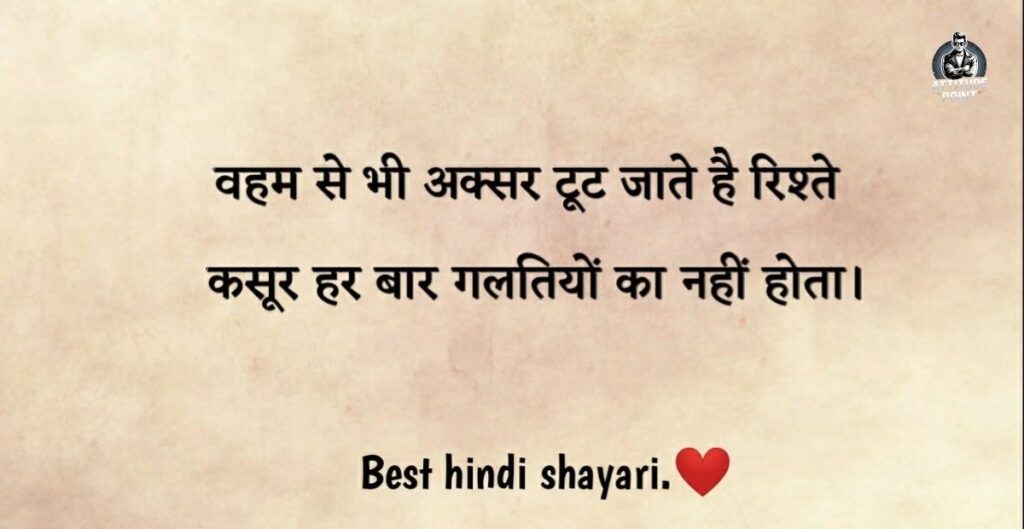 ATTITUDE
POINT
वहम से भी अक्सर टूट जाते है रिश्ते
कसूर हर बार गलतियों का नहीं होता।
Best hindi shayari.❤️